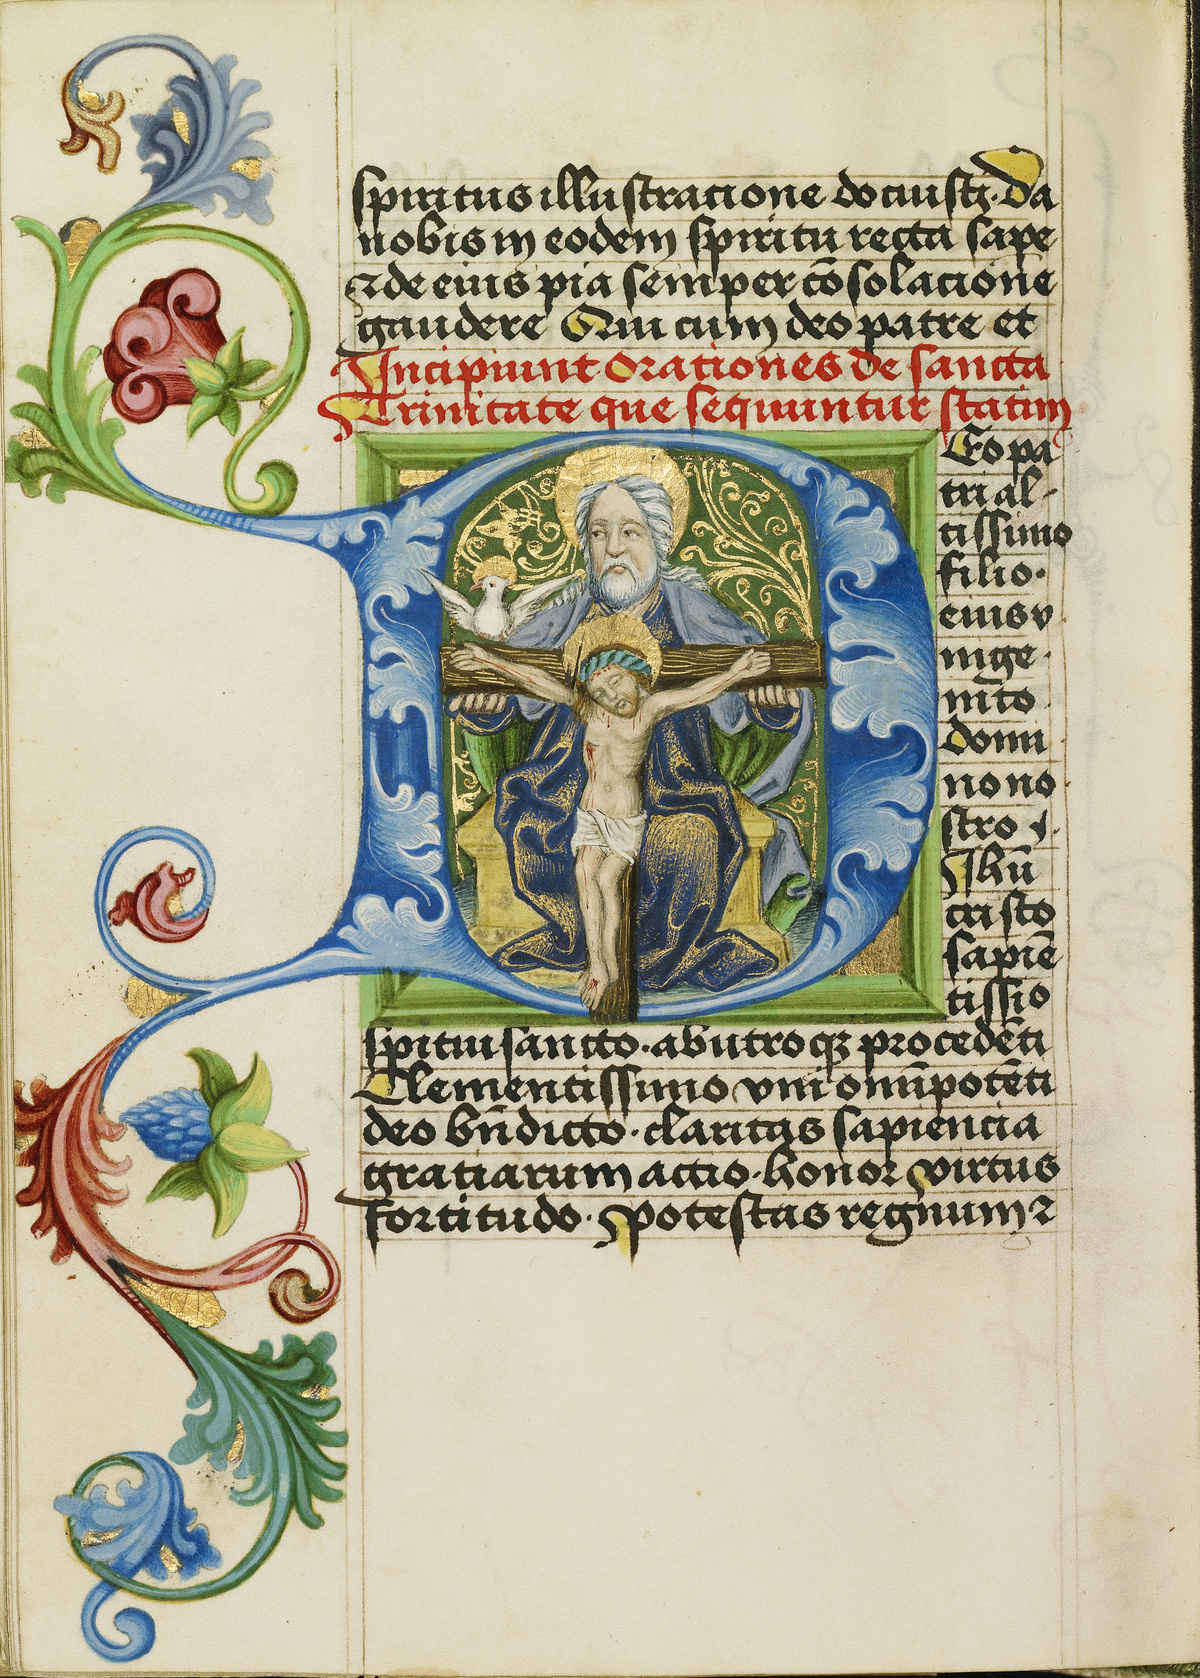 spiritus illustracione docuisti. Da
nobis in eodem spiritu recta sape
⁊ de eius pia semper cōsolacione
gaudere Qui cum deo patre et
Incipiunt orationes de sancta
Trinitate que sequuntur statim
Eo pa
tri al-
tissimo
filio.
eius v
nige-
nito
domi
no no
stro i.
Ihū
cristo
sapiē
tissio
spitui sancto. ab utroqꝫ procedēti
Clementissimo vni omīpotēti
deo bn̄dicto. claritas sapiencia
gratiarum actio. honor virtus
fortitudo. potestas regnum ⁊